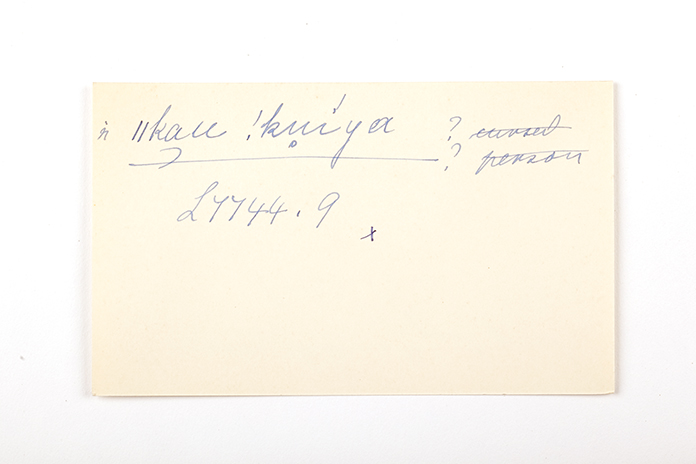 n ǁkau !kui ya ? cursed
? person
L7744.9
x